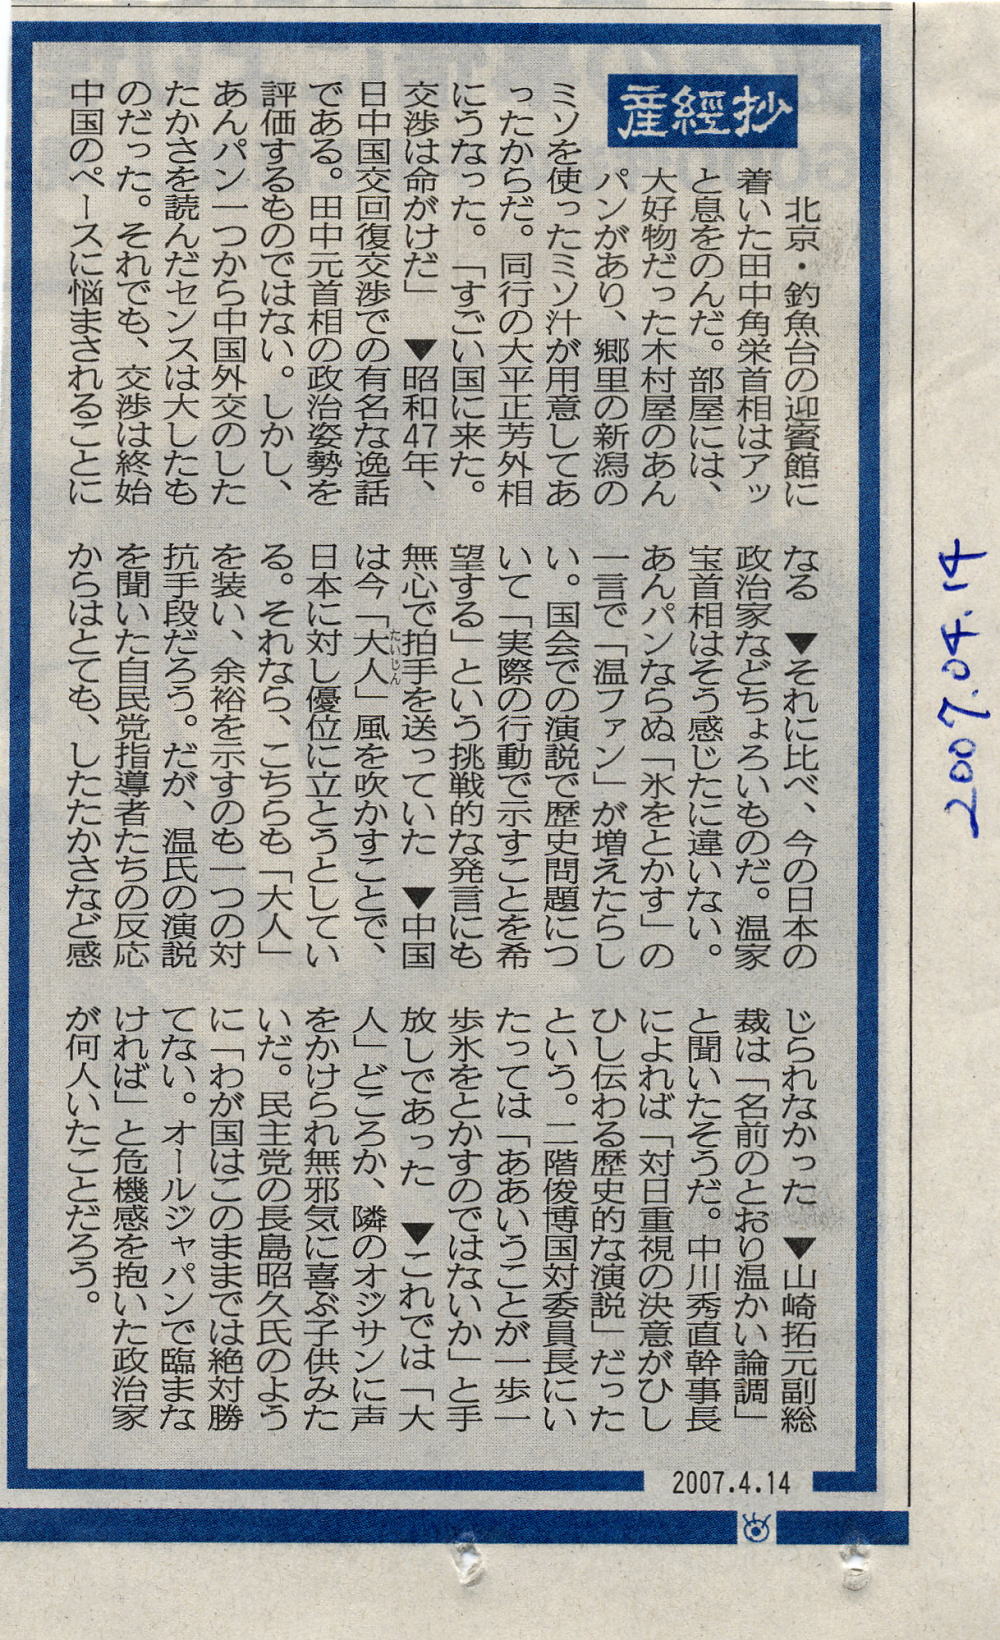 産經抄
北京・釣魚台の迎賓館に
着いた田中角栄首相はアッ
と息をのんだ。部屋には、
大好物だった木村屋のあん
パンがあり、郷里の新潟の
ミソを使ったミソ汁が用意してあ
ったからだ。同行の大平正芳外相
にうなった。「すごい国に来た。
交渉は命がけだ」 ▼昭和47年、
日中国交回復交渉での有名な逸話
である。田中元首相の政治姿勢を
評価するものではない。しかし、
あんパン一つから中国外交のした
たかさを読んだセンスは大したも
のだった。それでも、交渉は終始
中国のペースに悩まされることに
なる ▼それに比べ、今の日本の
政治家などちょろいものだ。温家
宝首相はそう感じたに違いない。
あんパンならぬ「氷をとかす」の
一言で「温ファン」が増えたらし
い。国会での演説で歴史問題につ
いて「実際の行動で示すことを希
望する」という挑戦的な発言にも
無心で拍手を送っていた ▼中国
は今「大人」風を吹かすことで、
たいじん
日本に対し優位に立とうとしてい
る。それなら、こちらも「大人」
を装い、余裕を示すのも一つの対
抗手段だろう。だが、温氏の演説
を聞いた自民党指導者たちの反応
からはとても、したたかさなど感
じられなかった ▼山崎拓元副総
裁は「名前のとおり温かい論調」
と聞いたそうだ。中川秀直幹事長
によれば「対日重視の決意がひし
ひし伝わる歴史的な演説」だった
という。二階俊博国対委員長にい
たっては「ああいうことが一歩一
歩氷をとかすのではないか」と手
放しであった ▼これでは「大
人」どころか、隣のオジサンに声
をかけられ無邪気に喜ぶ子供みた
いだ。民主党の長島昭久氏のよう
に「わが国はこのままでは絶対勝
てない。オールジャパンで臨まな
ければ」と危機感を抱いた政治家
が何人いたことだろう。
2007.4.14
2007.04.14